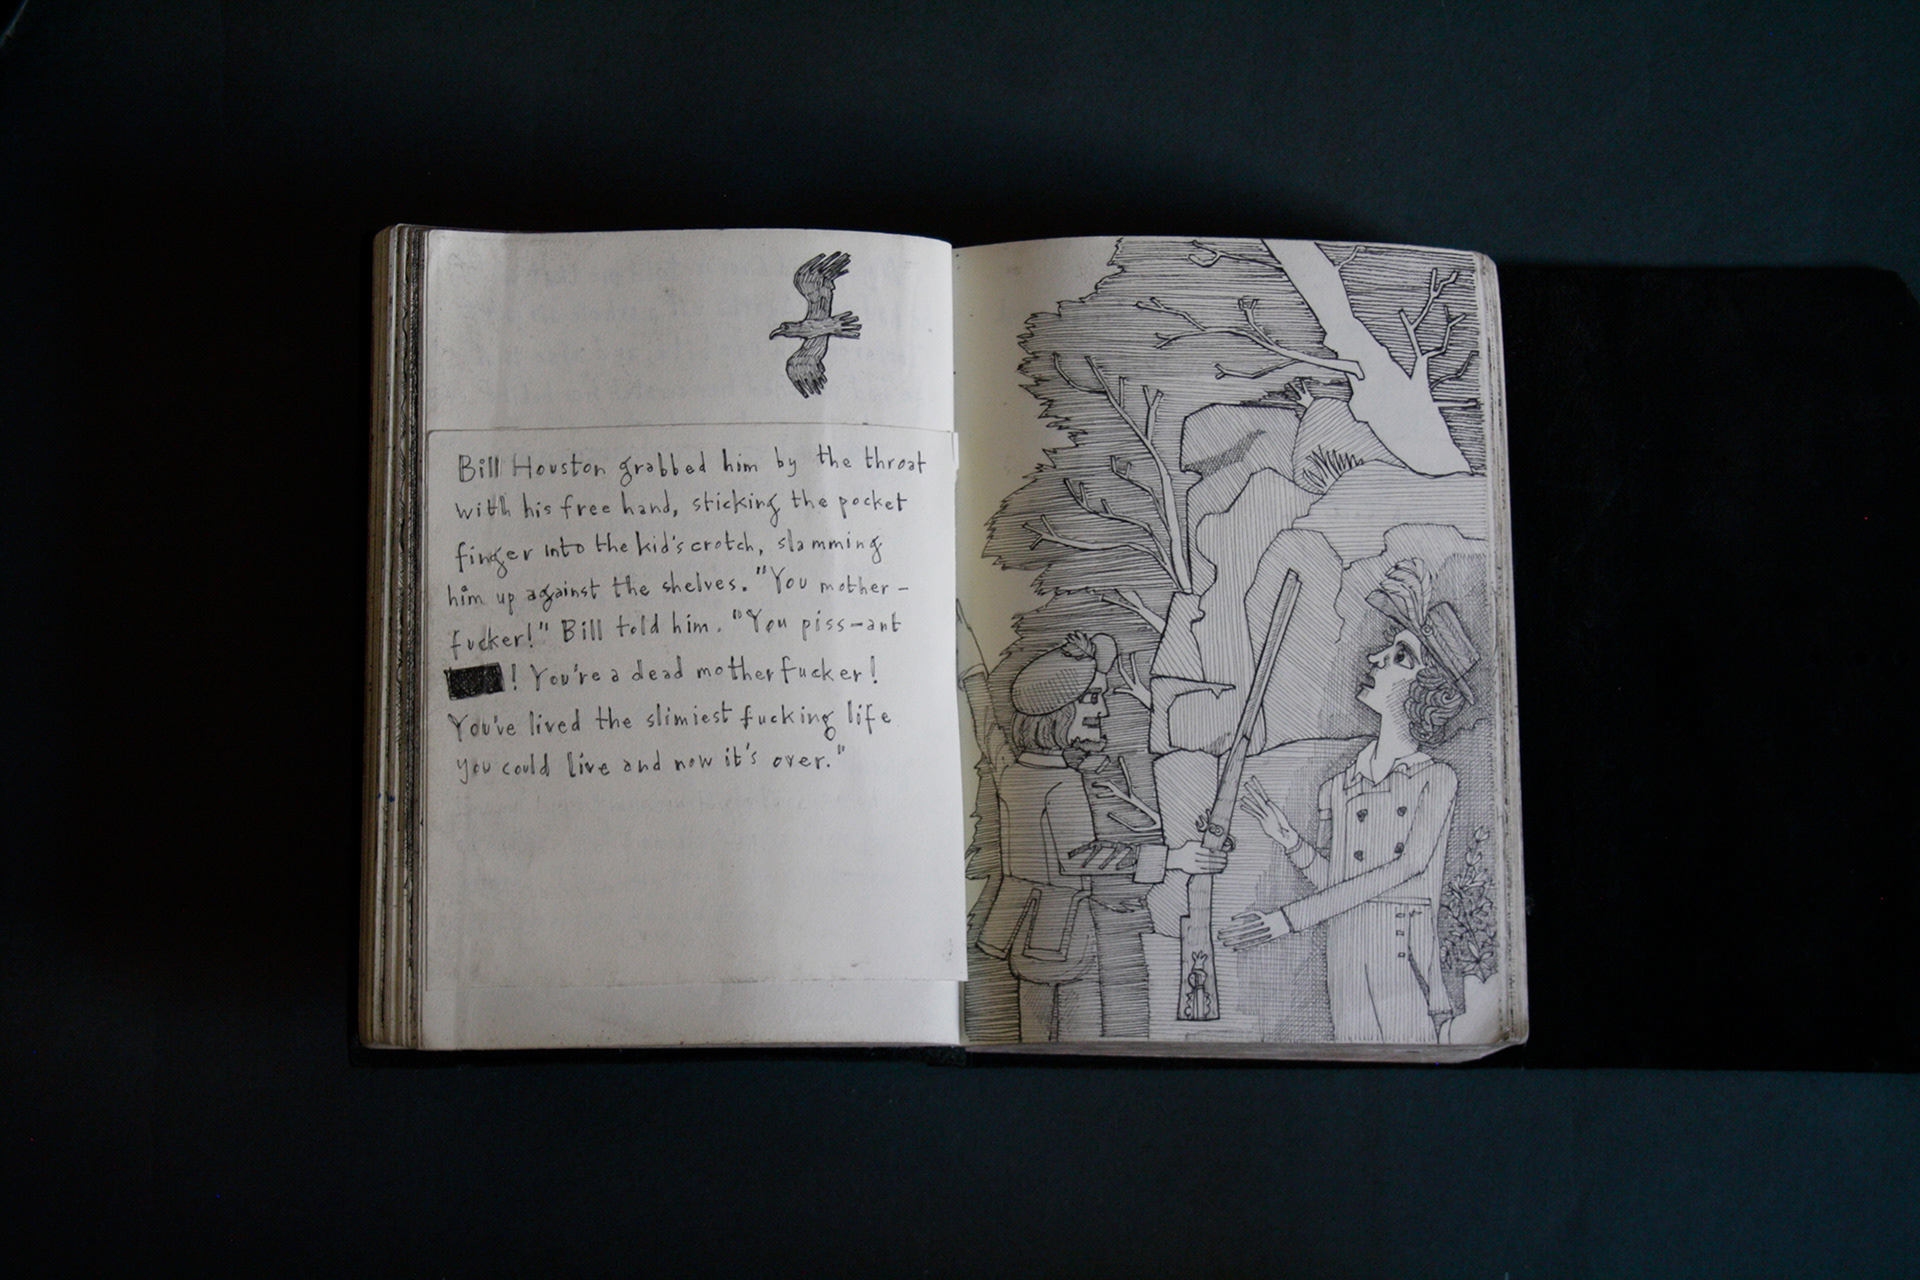 Bill Houston grabbed him by the throat
with his free hand, sticking the pocket
finger into the kid's crotch, slamming
him up against the shelves. "You mother-
fucker!" Bill told him. "You piss-ant
! You're a dead motherfucker!
You've lived the slimiest fucking life
you could live and now it's over."